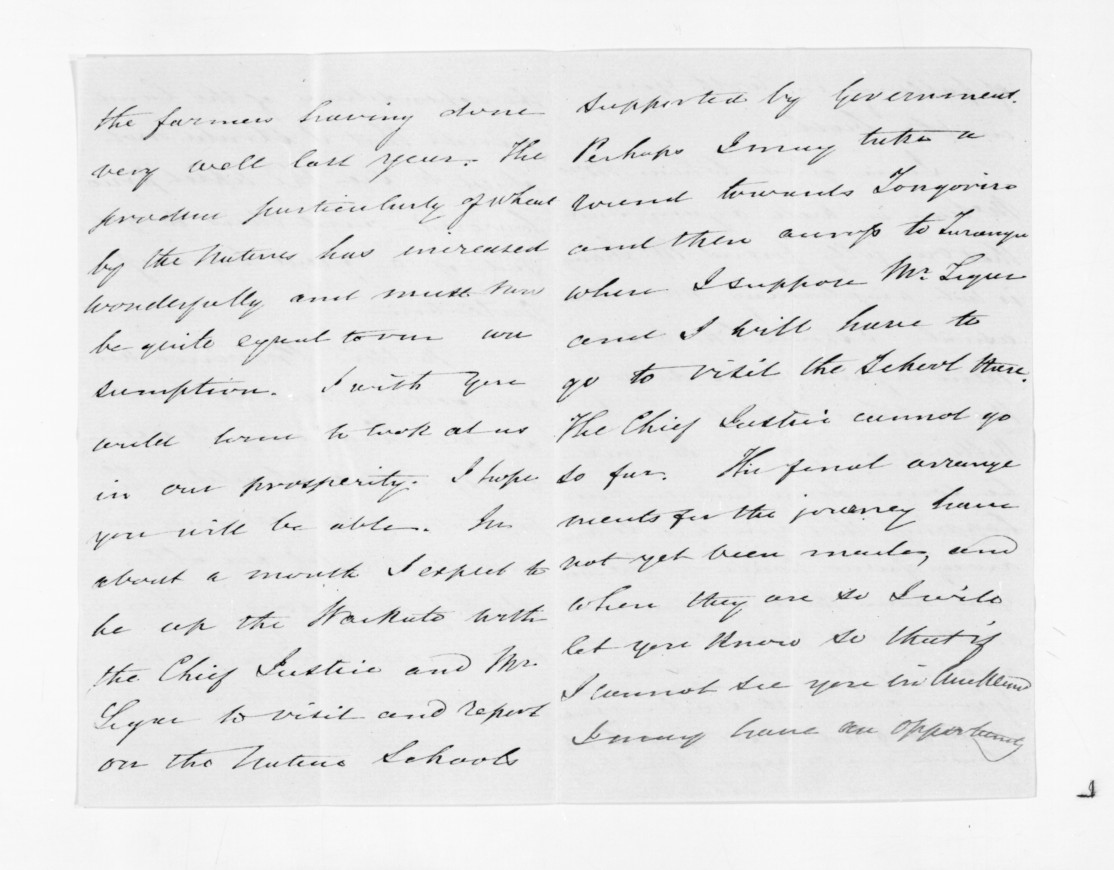 the farmers having done
very well last year. The
produce particularly of wheat
by the Natives has increased
wonderfully and must now
be quite equal to our con
sumption. I wish you
could come to look at us
in our prosperity. I hope
you will be able. In
about a month I expect to
be up the Waikato with
the Chief Justice and Mr
Ligar to visit and report
on the Native Schools
supported by Government.
Perhaps I may take a
round towards Tongoriro
and then across to Turanga
where I suppose Mr Ligar
and I will have to
go to visit the School there.
The Chief Justice cannot go
so far. The final arrange
ments for the journey have
not yet been made, and
when they are so I will
let you know so that if
I cannot see you in Auckland
I may have an opportunity